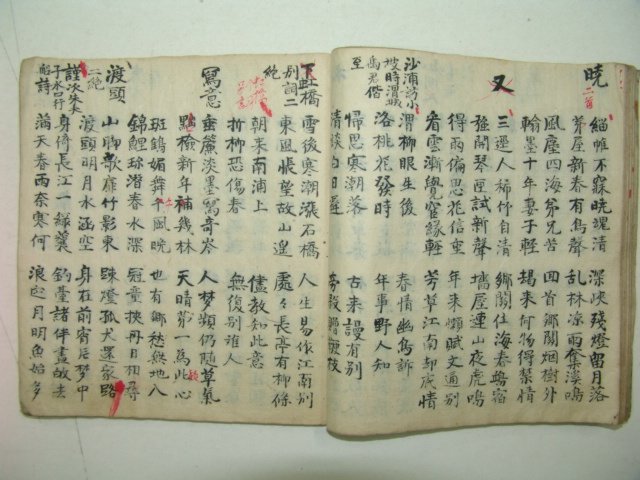 曉 二首
緇帷不寐曉魂清 深峽殘燈留月落
茅屋新春有鳥聲 亂林凉雨奪溪鳴
風塵四海弟兄苦 回首鄉關烟樹外
翰墨十年妻子輕 場來何物得榮情
又
三逕人稀竹自清 鄉關住海春鷗宿
強開琴匣試新聲 墻屋連山夜虎鳴
得雨偏思花信重 年來懶賦文通別
看雲漸覺宦緣輕 芳草江南却感情
沙浦
至
渭柳眼生後 春情幽鳥訴
洛桃花發時 年事野人知
帰思寒潮落 古來謾有別
清談白日遲
下杜橋別詞二絶
雪後寒潮漲石橋 人生易作江南別
東風悵望故山遙 處々長亭有柳條
朝來南浦上 儘教知此意
折柳恐傷春 無復別離人
寫意
垂簾淡墨寫奇岑 人夢頻仍隨草氣
點檢新年補幾林 天晴第一為此心
斑鶴媚舞千風晩 也有鄉愁無地入
錦鯉珎潛春水深 冠童挾冊日相尋
渡頭 二絶
山聊歌扉竹影東 踈燈孤犬還家路
渡頭明月水涵空 身在前宵后夢中
謹次朱夫子水口行船詩
身倚長江一綠蓑 釣臺諸伴盡故去
滿天春雨奈寒何 浪起月明魚始多